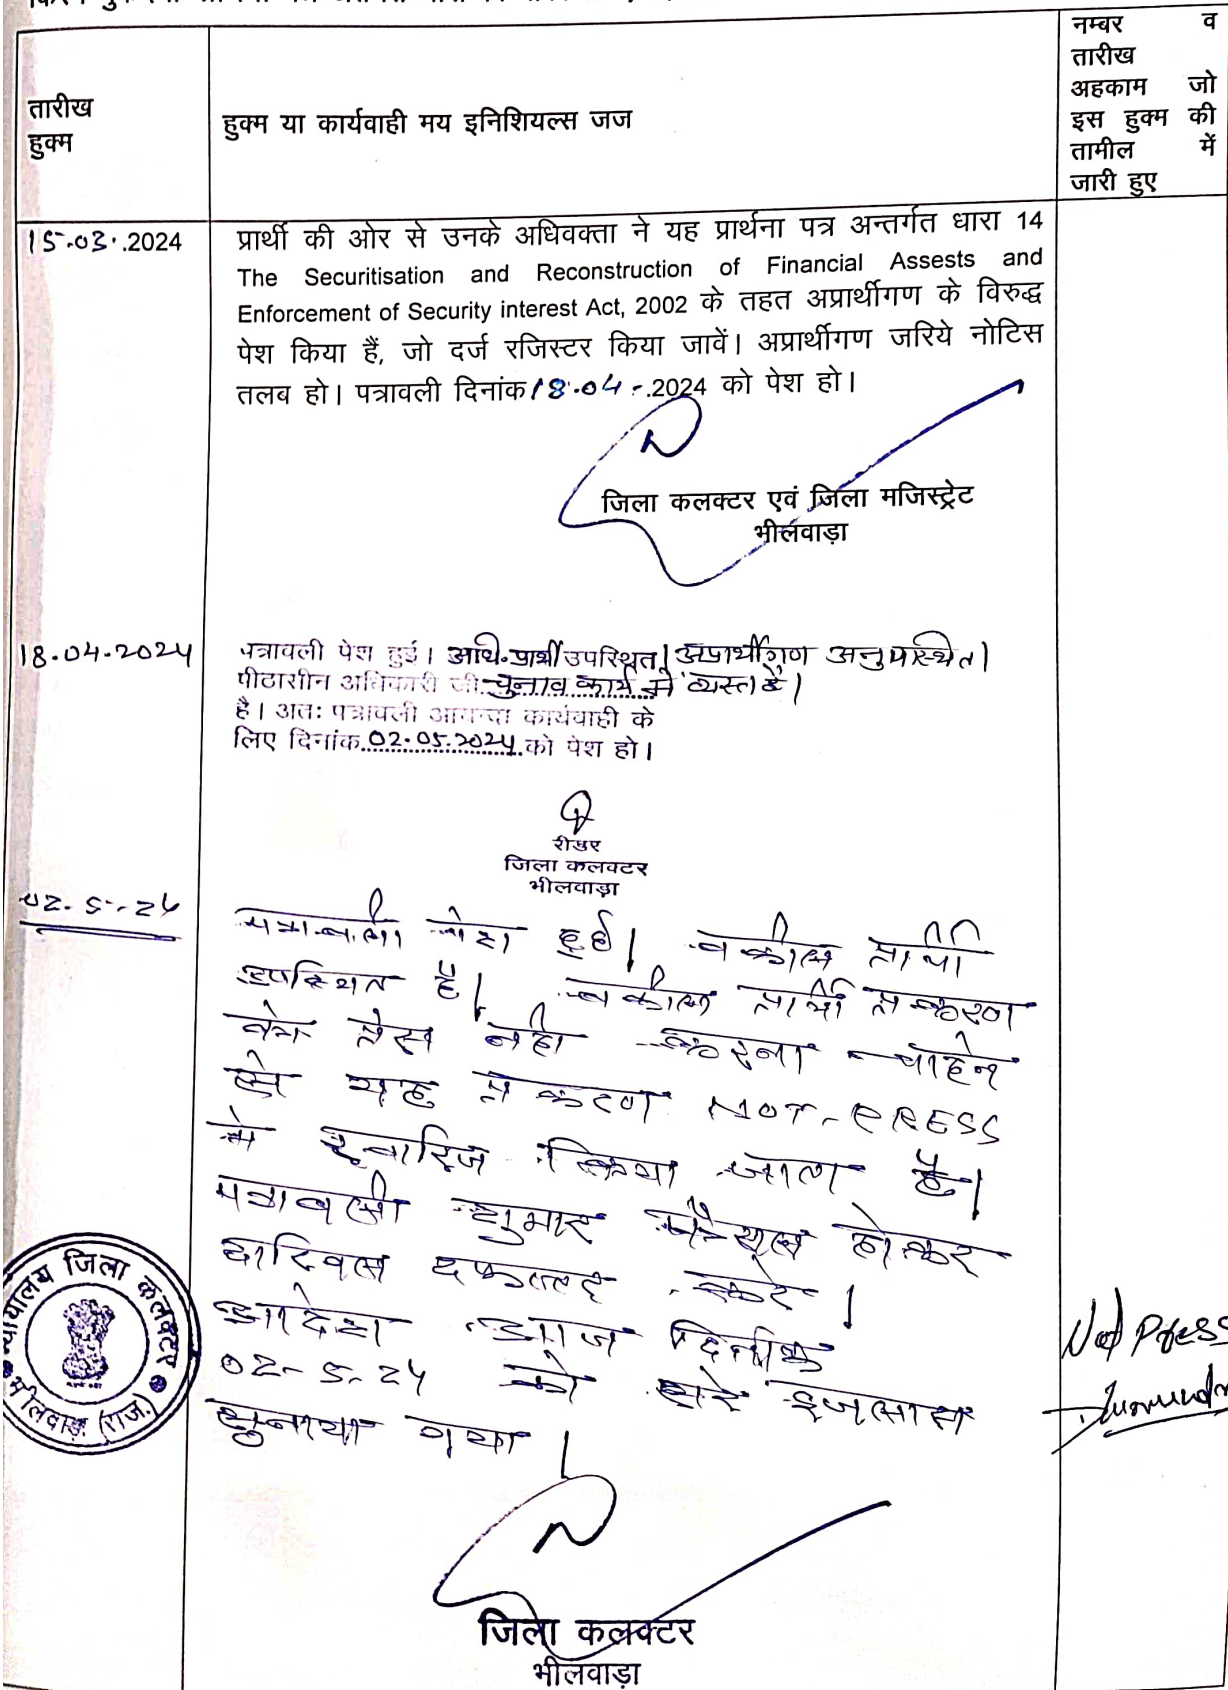 तारीख
हुक्म
हुक्म या कार्यवाही मय इनिशियल्स जज
नम्बर व
तारीख
अहकाम जो
इस हुक्म की
तामील में
जारी हुए
15.03..2024
प्रार्थी की ओर से उनके अधिवक्ता ने यह प्रार्थना पत्र अन्तर्गत धारा 14
The Securitisation and Reconstruction of Financial Assests and
Enforcement of Security interest Act, 2002 के तहत अप्रार्थीगण के विरुद्ध
पेश किया हैं, जो दर्ज रजिस्टर किया जावें। अप्रार्थीगण जरिये नोटिस
तलब हो। पत्रावली दिनांक 18.04-.2024 को पेश हो।
जिला कलक्टर एवं जिला मजिस्ट्रेट
भीलवाड़ा
18.04.2024
पत्रावली पेश हुई। अधि.प्रार्थी उपस्थित। अप्रार्थीगण अनुपस्थित।
पीठासीन अधिकारी जी चुनाव कार्य में व्यस्त है।
है। अतः पत्रावली आगन्दा कार्यवाही के
लिए दिनांक 02.05.2024 को पेश हो।
रीडर
जिला कलक्टर
भीलवाड़ा
02-5-24
पत्रावली पेश हुई। वकील प्रार्थी
उपस्थित है। वकील प्रार्थी प्रकरण
प्रेस नही करना चाहते
से यह प्रकरण NOT-PRESS
मे खारिज किया जाता है।
पत्रावली शुमार फैसल होकर
दाखिल दफ्तर करे।
आदेश आज दिनांक
02-5-24 को सरे इजलास
सुनाया गया।
Not Press
न्यायालय जिला कलक्टर
भीलवाड़ा (राज.)
जिला कलक्टर
भीलवाड़ा